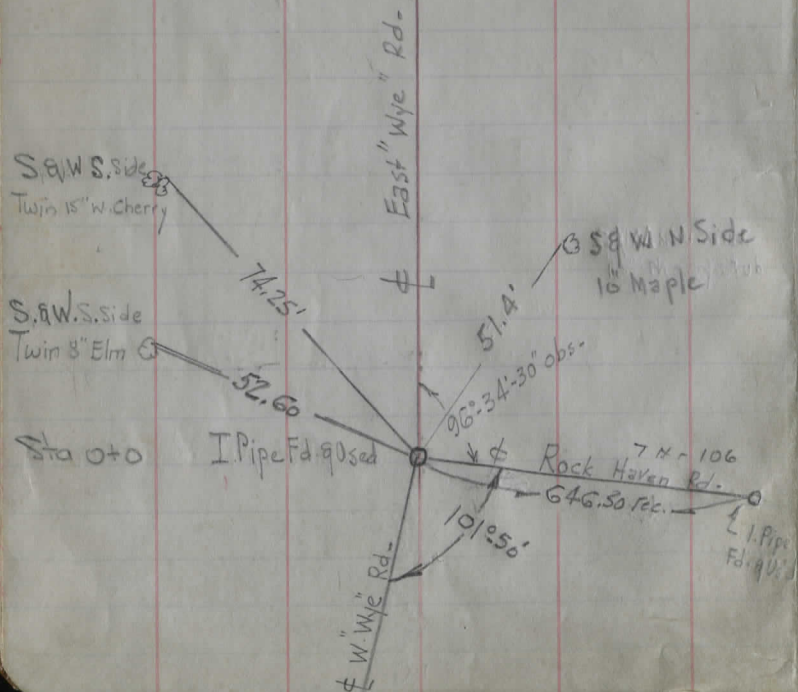 East "Wye" Rd.
S.&W S.Side
Twin 15" W. Cherry
74.25'
S&W. N. Side
10" Maple
51.4'
S.&W.S.Side
Twin 8" Elm
52.60
96°-34'-30" obs.
Sta 0+0
I. Pipe Fd. & Used
7 N - 106
Rock Haven Rd.
646.50 rec.
101°50'
1. Pipe
Fd. &
W. "Wye" Rd.